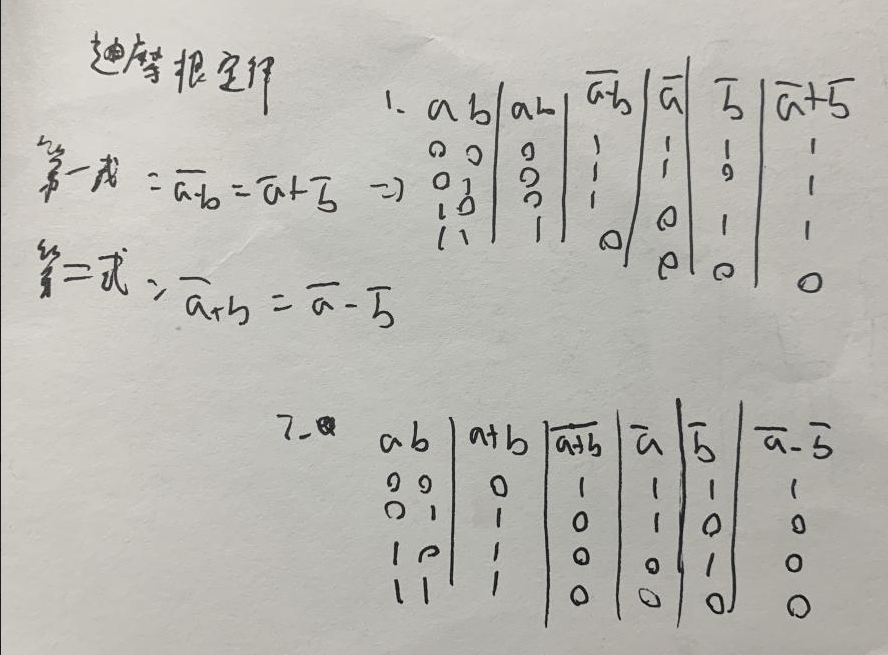 迪摩根定律
第一式 = a̅-̅b̅ = a̅+b̅ =>
第二式: a̅+̅b̅ = a̅-b̅
1. a b | ab | a̅-̅b̅ | a̅ | b̅ | a̅+b̅
0 0 | 0 | 1 | 1 | 1 | 1
0 1 | 0 | 1 | 1 | 0 | 1
1 0 | 0 | 1 | 0 | 1 | 1
1 1 | 1 | 0 | 0 | 0 | 0
2. a b | a+b | a̅+̅b̅ | a̅ | b̅ | a̅-b̅
0 0 | 0 | 1 | 1 | 1 | 1
0 1 | 1 | 0 | 1 | 0 | 0
1 0 | 1 | 0 | 0 | 1 | 0
1 1 | 1 | 0 | 0 | 0 | 0